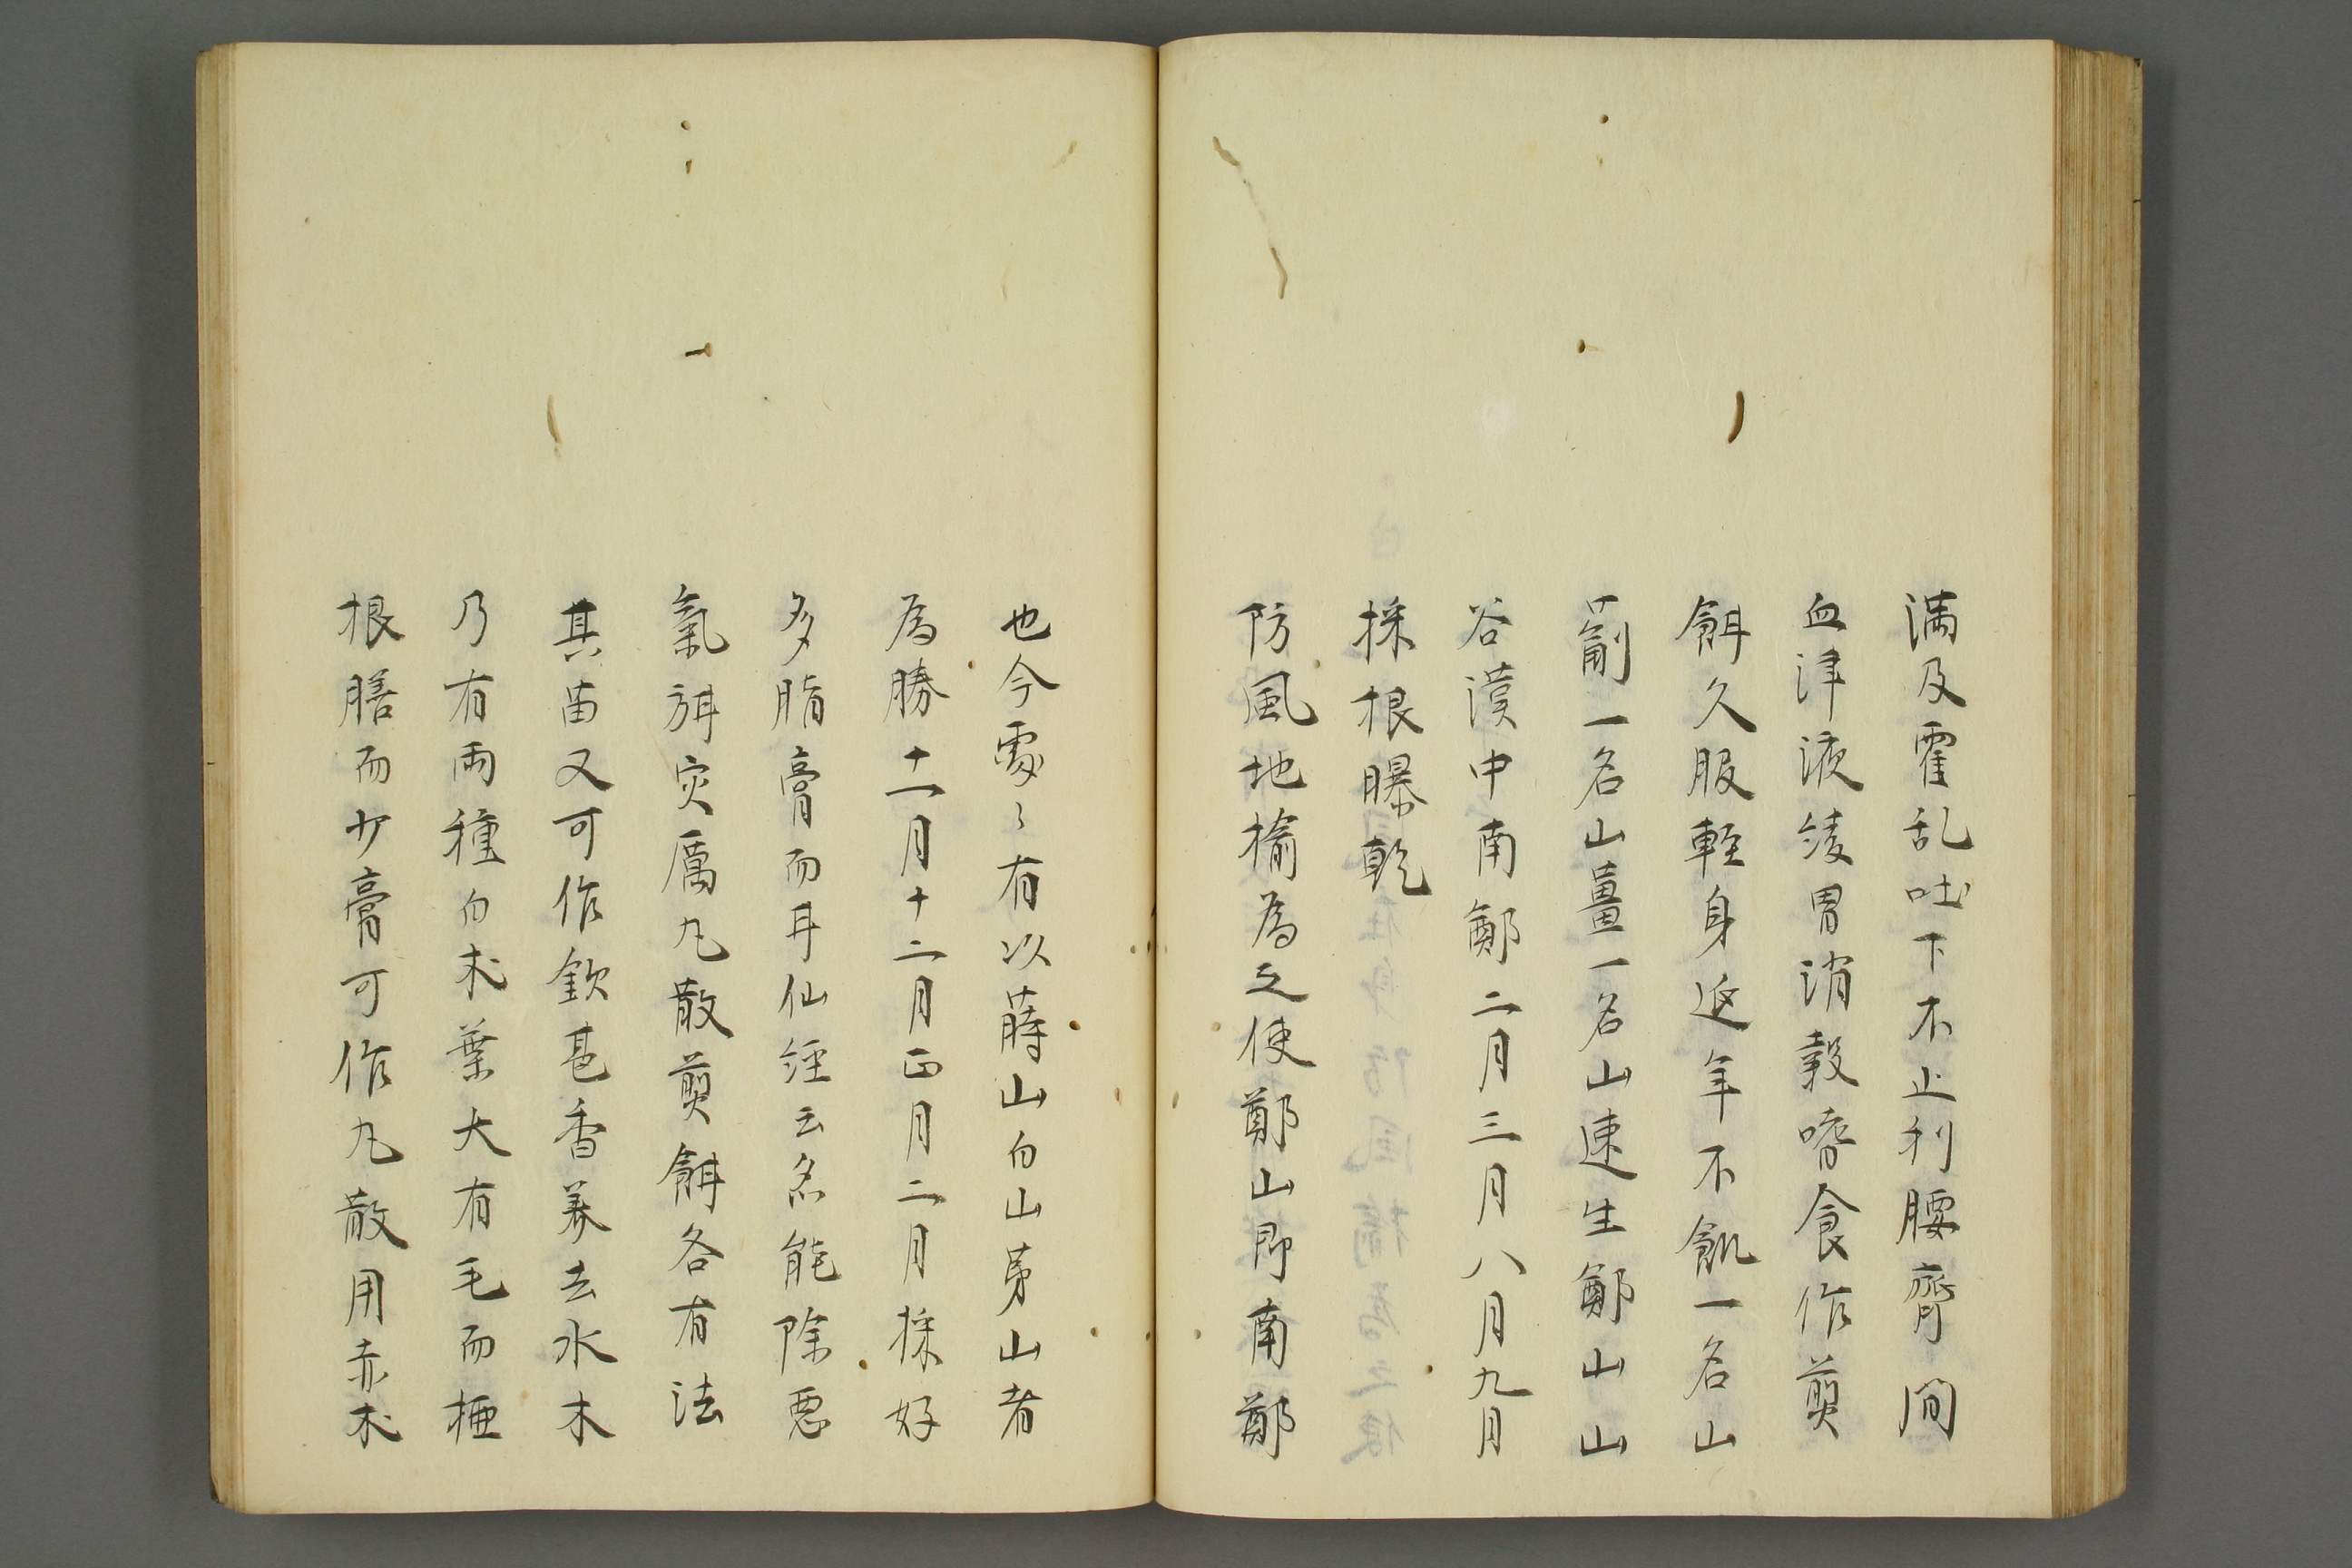 満及霍乱吐下不止利腰齊間
血津液㷟胃消穀嗜食作煎
餌久服軽身延年不飢一名山
薊一名山薑一名山連生鄭山山
谷漢中南鄭二月三月八月九月
採根曝乾
防風地榆為之使鄭山即南鄭
也今處〻有以蒋山白山茅山者
為勝十一月十二月正月二月採好
多脂膏而耳仙経云忽能除悪
氣弭灾厲丸散煎餌各有法
其苗又可作飲甚香美去水木
乃有両種白朮葉大有毛而椏
根膳而少膏可作丸散用赤朮